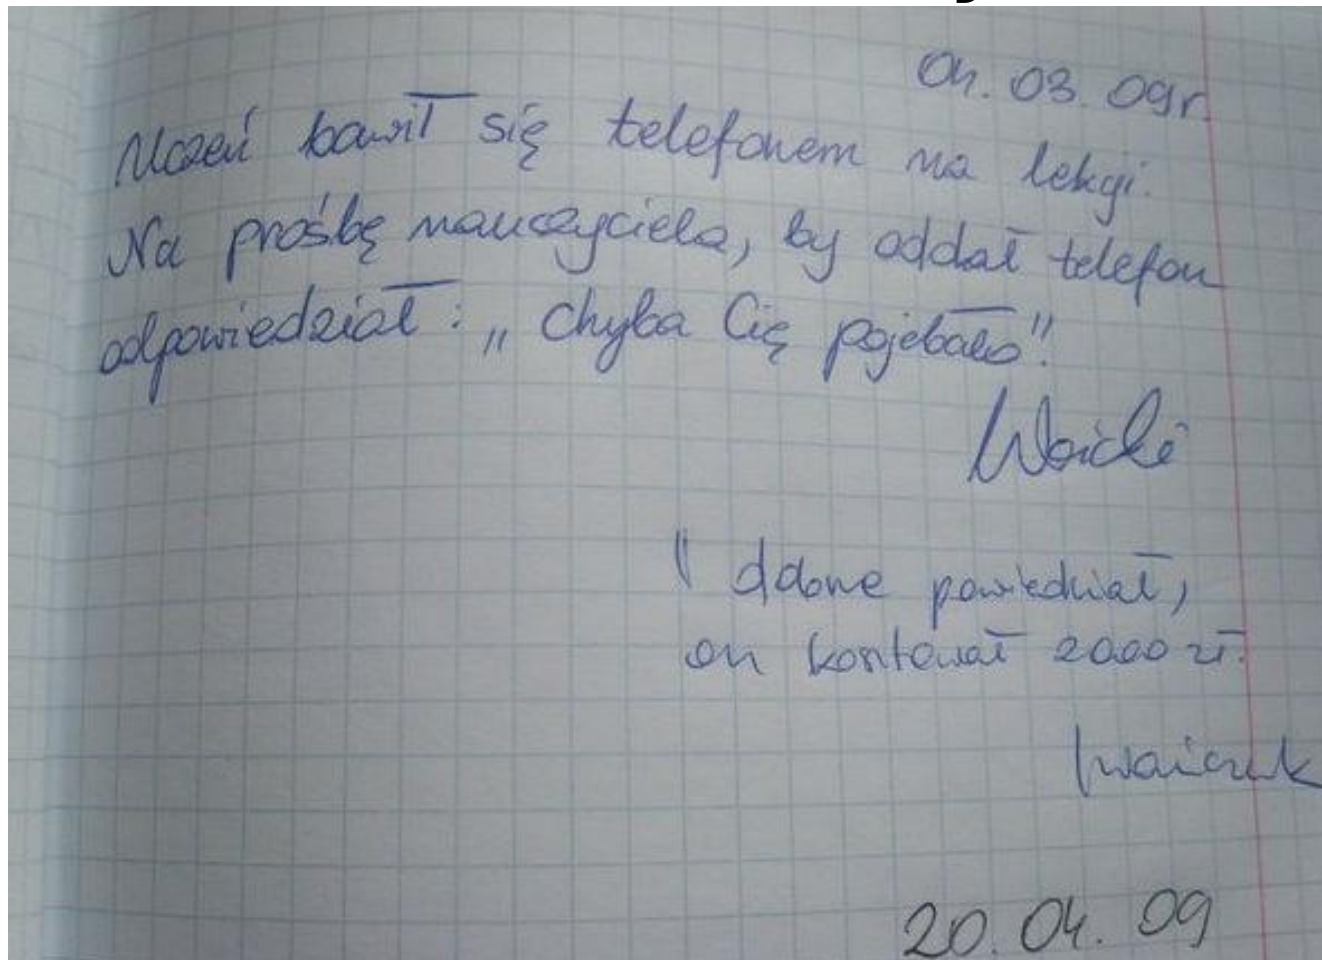 04.03.09r.
Uczeń bawił się telefonem na lekcji.
Na prośbę nauczyciela, by oddał telefon
odpowiedział: „Chyba Cię pojebało".
dobrze powiedział,
on kosztował 2000 zł.
20.04.09